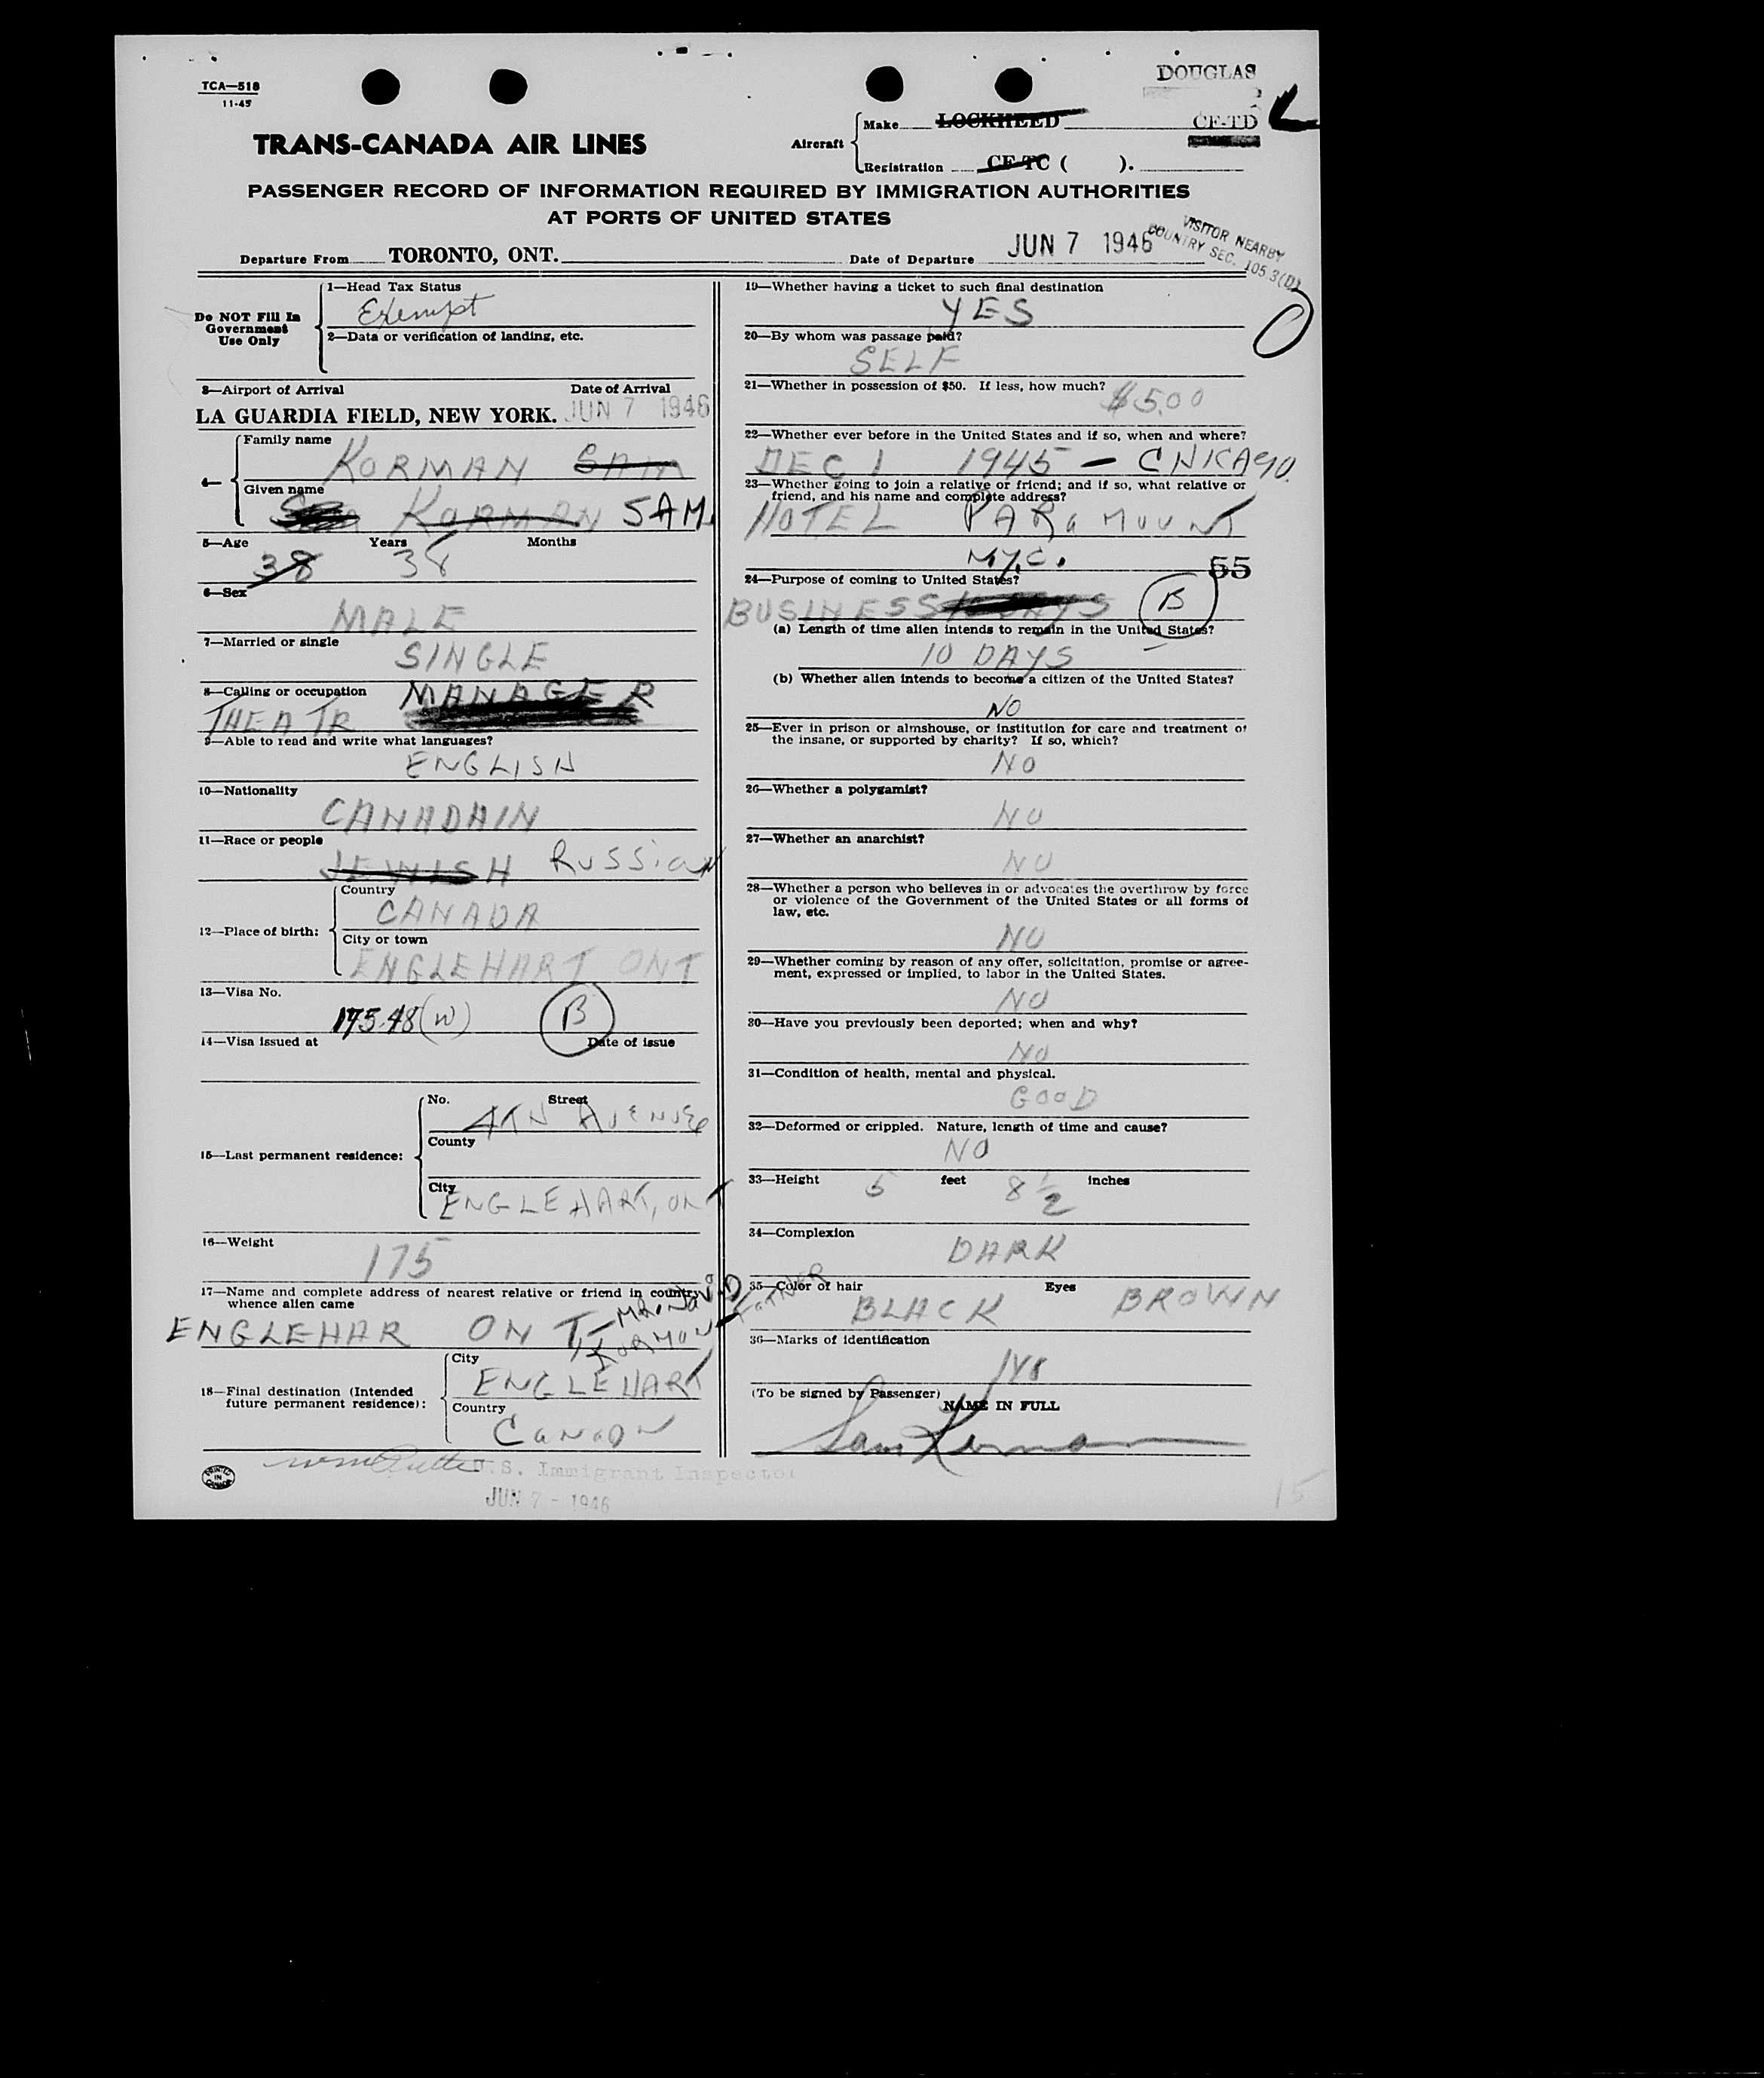 TCA—518
11-45
DOUGLAS
TRANS-CANADA AIR LINES
Aircraft
Make LOCKHEED
CF-TD L
Registration CF-TC ( ).
PASSENGER RECORD OF INFORMATION REQUIRED BY IMMIGRATION AUTHORITIES
AT PORTS OF UNITED STATES
VISITOR NEARBY
COUNTRY SEC. 105 3(D)
Departure From TORONTO, ONT. Date of Departure JUN 7 1946
Do NOT Fill In
Government
Use Only
1—Head Tax Status
Exempt
2—Data or verification of landing, etc.
3—Airport of Arrival Date of Arrival
LA GUARDIA FIELD, NEW YORK. JUN 7 1946
4—
Family name
KORMAN SAM
Given name
KORMAN SAM
5—Age Years Months
38 38
6—Sex
MALE
7—Married or single
SINGLE
8—Calling or occupation MANAGER
THEATR
9—Able to read and write what languages?
ENGLISH
10—Nationality
CANADAIN
11—Race or people
JEWISH RUSSIAN
12—Place of birth:
Country
CANADA
City or town
ENGLEHART ONT
13—Visa No.
175.48 (W) B
14—Visa issued at Date of issue
15—Last permanent residence:
No. Street
4TH AVENUE
County
City
ENGLEHART, ONT
16—Weight
175
17—Name and complete address of nearest relative or friend in country
whence alien came
ENGLEHAR ONT — MR. DAVID
KORMON FATHER
18—Final destination (Intended
future permanent residence):
City
ENGLEHART
Country
CANADA
PRINTED
IN
CANADA
U.S. Immigrant Inspector
JUN 7 - 1946
19—Whether having a ticket to such final destination
YES
20—By whom was passage paid?
SELF
21—Whether in possession of $50. If less, how much?
$500
22—Whether ever before in the United States and if so, when and where?
DEC 1 1945 — CHICAGO.
23—Whether going to join a relative or friend; and if so, what relative or
friend, and his name and complete address?
HOTEL PARAMOUNT
N.Y.C. 55
24—Purpose of coming to United States?
BUSINESS B
(a) Length of time alien intends to remain in the United States?
10 DAYS
(b) Whether alien intends to become a citizen of the United States?
NO
25—Ever in prison or almshouse, or institution for care and treatment of
the insane, or supported by charity? If so, which?
NO
26—Whether a polygamist?
NO
27—Whether an anarchist?
NO
28—Whether a person who believes in or advocates the overthrow by force
or violence of the Government of the United States or all forms of
law, etc.
NO
29—Whether coming by reason of any offer, solicitation, promise or agree-
ment, expressed or implied, to labor in the United States.
NO
30—Have you previously been deported; when and why?
NO
31—Condition of health, mental and physical.
GOOD
32—Deformed or crippled. Nature, length of time and cause?
NO
33—Height 5 feet 8 1/2 inches
34—Complexion
DARK
35—Color of hair Eyes
BLACK BROWN
36—Marks of identification
(To be signed by Passenger)
NAME IN FULL
Sam Korman
15